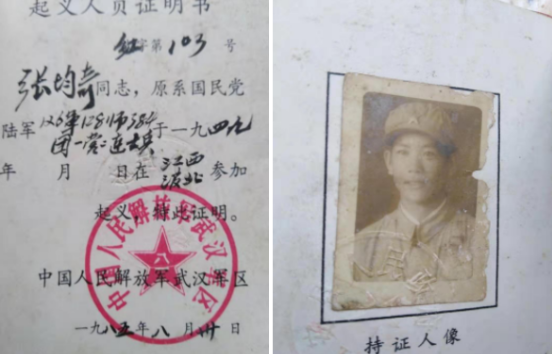 起义人员证明书
红字第103号
张均奇同志，原系国民党
陆军126军128师384
团一营 连士兵于一九四九
年 月 日在江西 参加
起义，特此证明。
中国人民解放军武汉军区
一九八五年八月卅日
中国人民解放军武汉军区
八一
持证人像